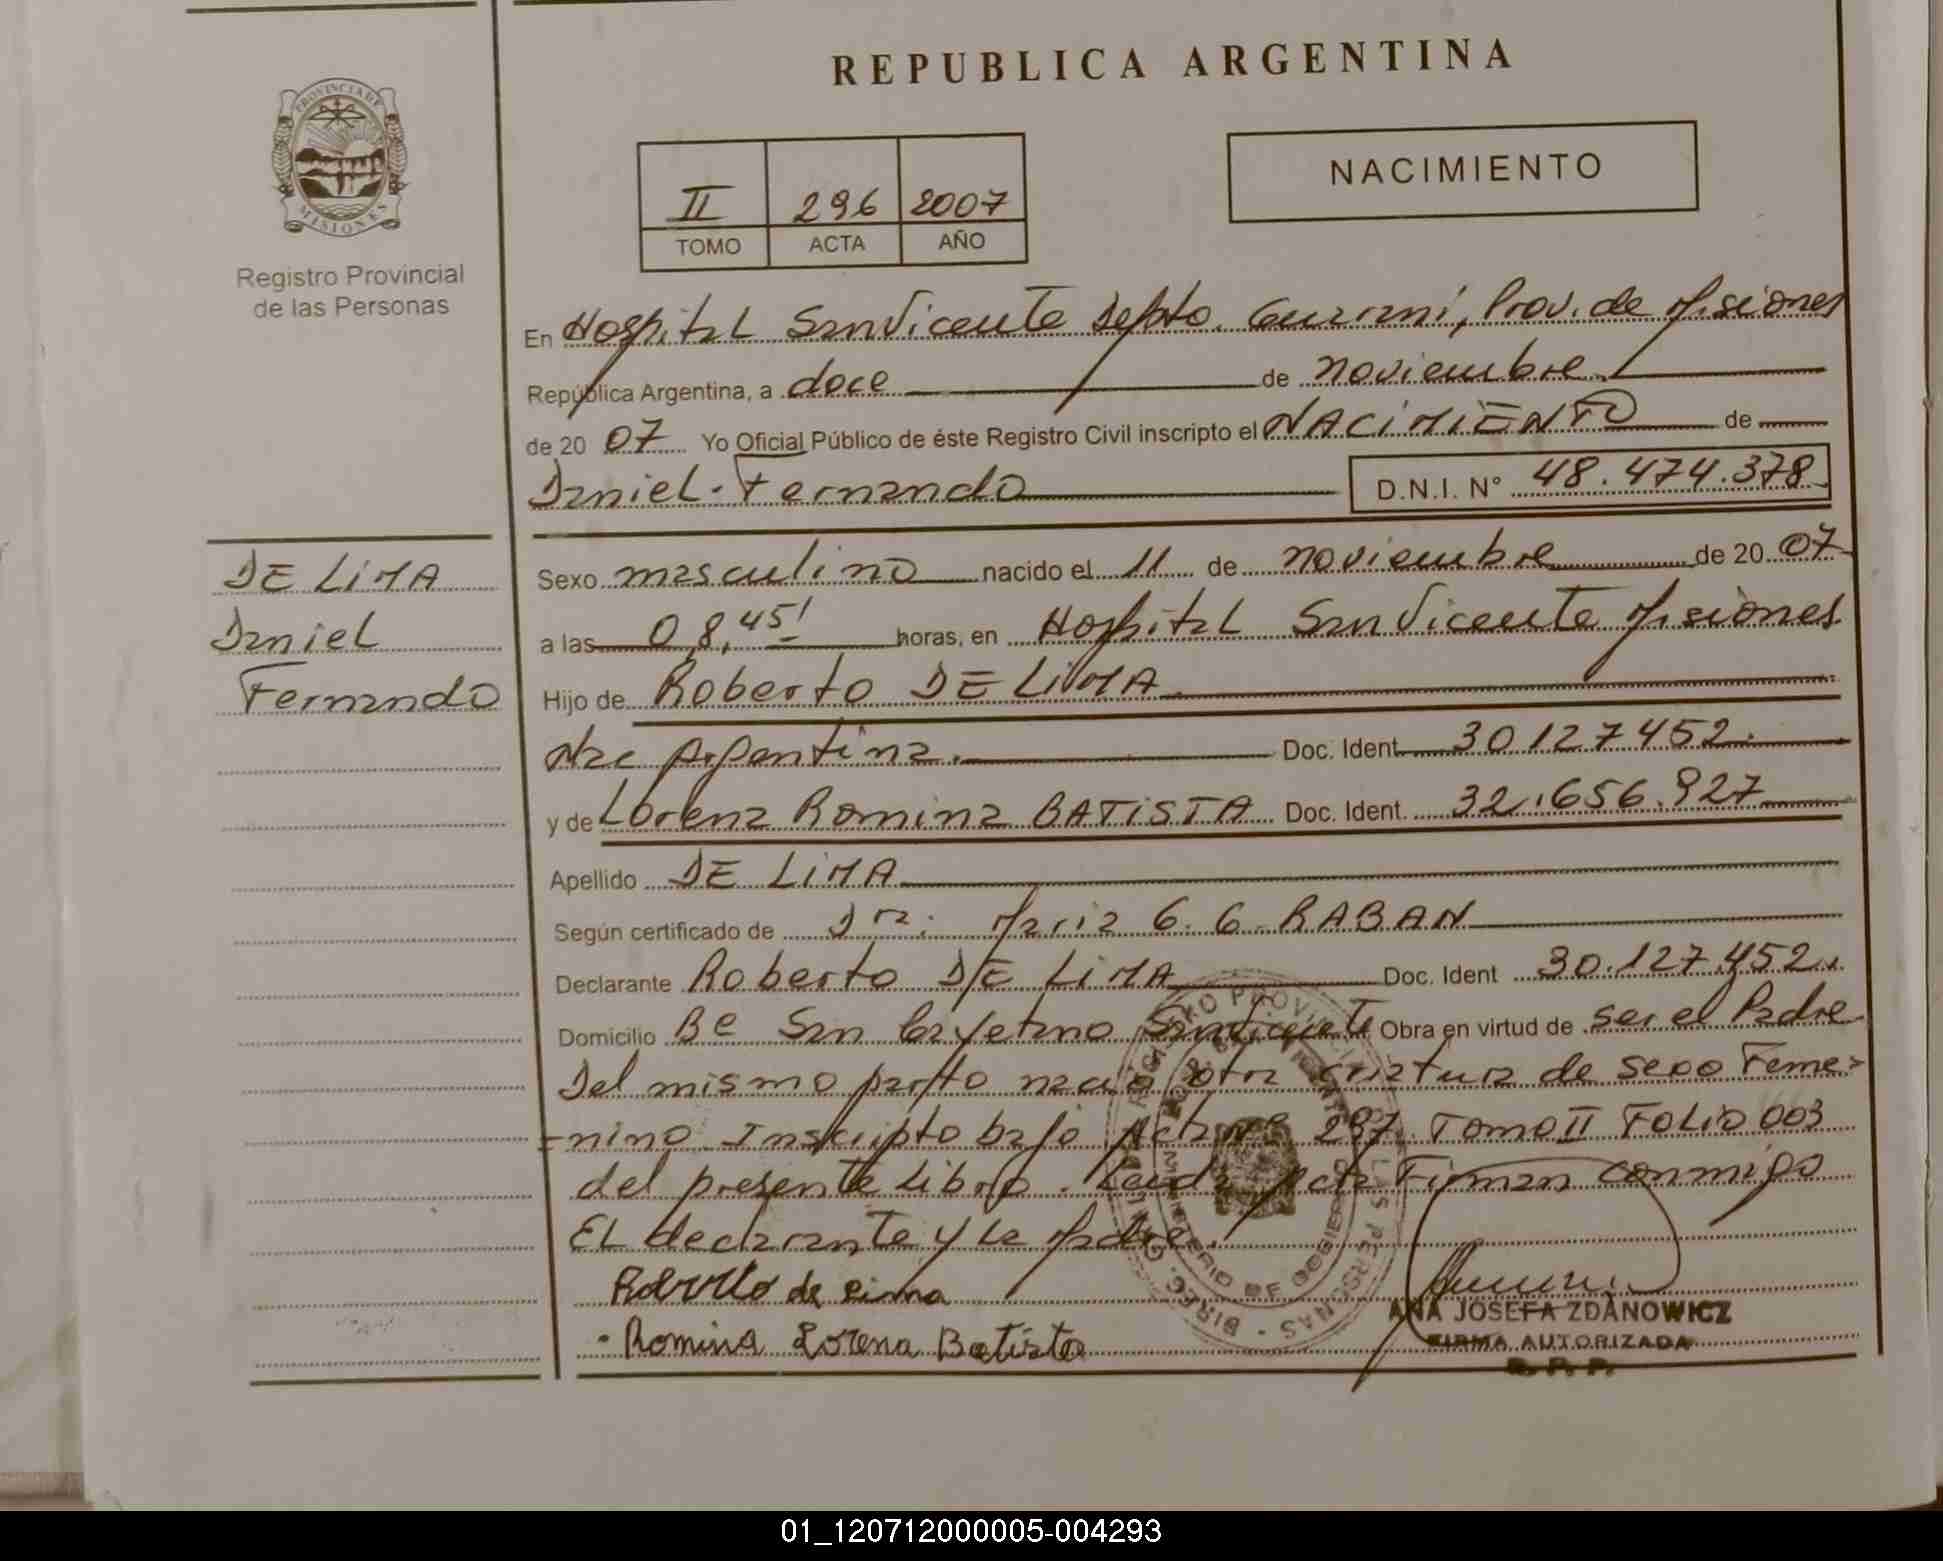 REPUBLICA ARGENTINA
PROVINCIA DE
MISIONES
Registro Provincial
de las Personas
II 296 2007
TOMO ACTA AÑO
NACIMIENTO
En Hospital San Vicente Depto. Guarani, Prov. de Misiones
República Argentina, a doce de noviembre
de 20 07 Yo Oficial Público de éste Registro Civil inscripto el NACIMIENTO de
Daniel Fernando D.N.I. N° 48.474.378
DE LIMA
Daniel
Fernando
Sexo masculino nacido el 11 de noviembre de 20 07
a las 08,45' horas, en Hospital San Vicente Misiones
Hijo de Roberto DE LIMA
Nac Argentina. Doc. Ident 30127452.
y de Lorena Romina BATISTA Doc. Ident. 32.656.927
Apellido DE LIMA
Según certificado de Dra. Maria G. G. RABAN
Declarante Roberto DE LIMA Doc. Ident 30.127.452.
Domicilio Bº San Cayetano San Vicente Obra en virtud de ser el Padre
Del mismo parto nacio otra criatura de sexo Feme-
-nino Inscripto bajo Acta Nº 297 Tomo II FOLIO 003
del presente libro. Leida Acta Firman conmigo
EL declarante y la Madre.
Roberto de Lima
Romina Lorena Batista
ANA JOSEFA ZDANOWICZ
FIRMA AUTORIZADA
R. P. P.
01_120712000005-004293